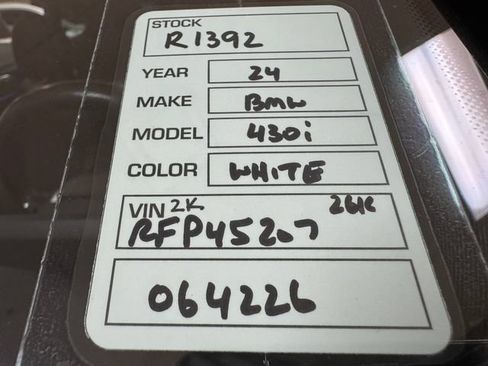 STOCK
R1392
YEAR 24
MAKE BMW
MODEL 430i
COLOR WHITE
VIN 2K 26K
RFP45207
064226